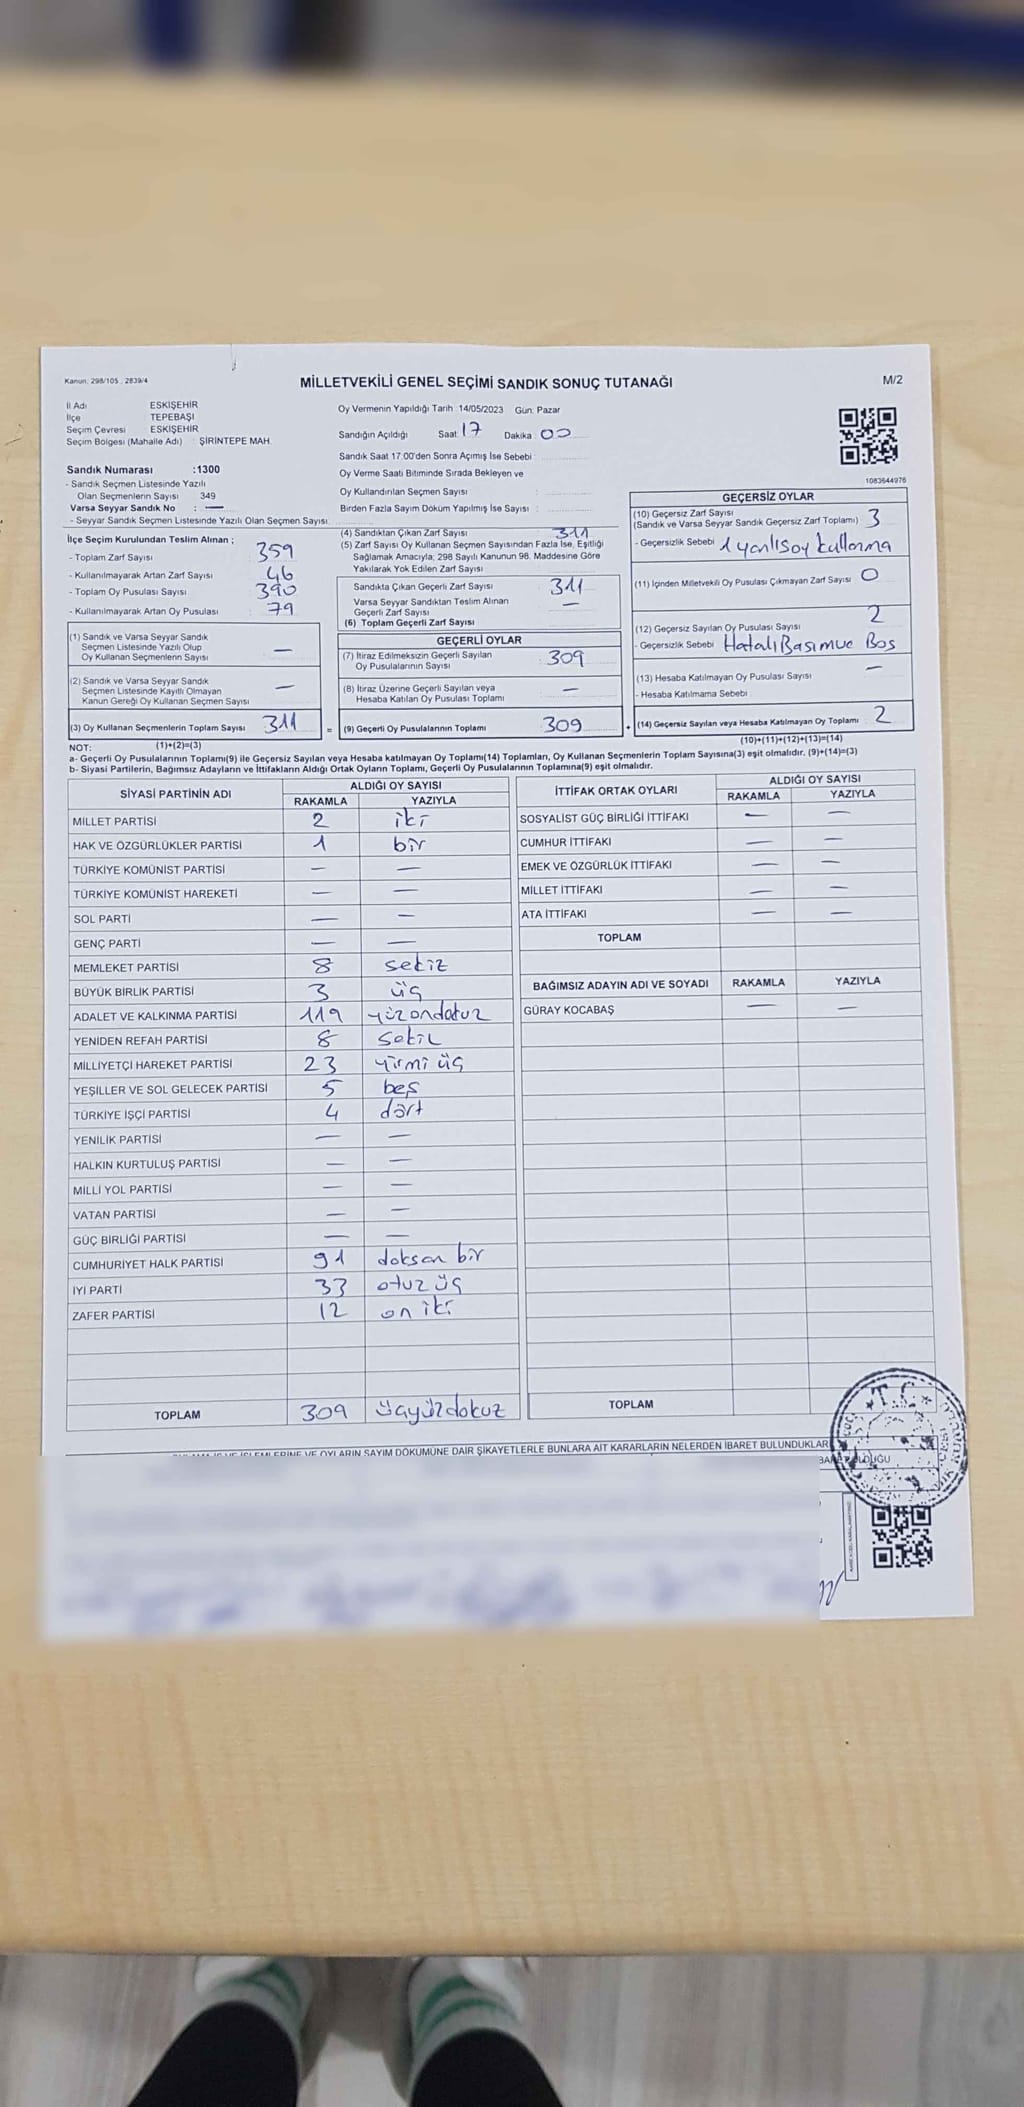 Kanun: 298/105 , 2839/4
MİLLETVEKİLİ GENEL SEÇİMİ SANDIK SONUÇ TUTANAĞI
M/2
İl Adı ESKİŞEHİR
İlçe TEPEBAŞI
Seçim Çevresi ESKİŞEHİR
Seçim Bölgesi (Mahalle Adı) : ŞİRİNTEPE MAH.
Sandık Numarası :1300
- Sandık Seçmen Listesinde Yazılı
Olan Seçmenlerin Sayısı 349
Varsa Seyyar Sandık No : —
- Seyyar Sandık Seçmen Listesinde Yazılı Olan Seçmen Sayısı
Oy Vermenin Yapıldığı Tarih :14/05/2023 Gün: Pazar
Sandığın Açıldığı Saat: 17 Dakika: 00
Sandık Saat 17:00'den Sonra Açımış İse Sebebi :
Oy Verme Saati Bitiminde Sırada Bekleyen ve
Oy Kullandırılan Seçmen Sayısı :
Birden Fazla Sayım Döküm Yapılmış İse Sayısı :
1083644976
İlçe Seçim Kurulundan Teslim Alınan ;
- Toplam Zarf Sayısı 359
- Kullanılmayarak Artan Zarf Sayısı 46
- Toplam Oy Pusulası Sayısı 390
- Kullanılmayarak Artan Oy Pusulası 79
(1) Sandık ve Varsa Seyyar Sandık
Seçmen Listesinde Yazılı Olup
Oy Kullanan Seçmenlerin Sayısı —
(2) Sandık ve Varsa Seyyar Sandık
Seçmen Listesinde Kayıtlı Olmayan
Kanun Gereği Oy Kullanan Seçmen Sayısı —
(3) Oy Kullanan Seçmenlerin Toplam Sayısı 311 =
(4) Sandıktan Çıkan Zarf Sayısı 311
(5) Zarf Sayısı Oy Kullanan Seçmen Sayısından Fazla İse, Eşitliği
Sağlamak Amacıyla, 298 Sayılı Kanunun 98. Maddesine Göre
Yakılarak Yok Edilen Zarf Sayısı
Sandıkta Çıkan Geçerli Zarf Sayısı 311
Varsa Seyyar Sandıktan Teslim Alınan
Geçerli Zarf Sayısı —
(6) Toplam Geçerli Zarf Sayısı
GEÇERLİ OYLAR
(7) İtiraz Edilmeksizin Geçerli Sayılan
Oy Pusulalarının Sayısı : 309
(8) İtiraz Üzerine Geçerli Sayılan veya
Hesaba Katılan Oy Pusulası Toplamı —
(9) Geçerli Oy Pusulalarının Toplamı 309 +
GEÇERSİZ OYLAR
(10) Geçersiz Zarf Sayısı
(Sandık ve Varsa Seyyar Sandık Geçersiz Zarf Toplamı) 3
- Geçersizlik Sebebi 1 yanlış oy kullanma
(11) İçinden Milletvekili Oy Pusulası Çıkmayan Zarf Sayısı 0
(12) Geçersiz Sayılan Oy Pusulası Sayısı 2
- Geçersizlik Sebebi Hatalı Basım ve Boş
(13) Hesaba Katılmayan Oy Pusulası Sayısı —
- Hesaba Katılmama Sebebi
(14) Geçersiz Sayılan veya Hesaba Katılmayan Oy Toplamı 2
NOT: (1)+(2)=(3)
(10)+(11)+(12)+(13)=(14)
a- Geçerli Oy Pusulalarının Toplamı(9) ile Geçersiz Sayılan veya Hesaba katılmayan Oy Toplamı(14) Toplamları, Oy Kullanan Seçmenlerin Toplam Sayısına(3) eşit olmalıdır. (9)+(14)=(3)
b- Siyasi Partilerin, Bağımsız Adayların ve İttifakların Aldığı Ortak Oyların Toplamı, Geçerli Oy Pusulalarının Toplamına(9) eşit olmalıdır.
SİYASİ PARTİNİN ADI ALDIĞI OY SAYISI
RAKAMLA YAZIYLA
MİLLET PARTİSİ 2 iki
HAK VE ÖZGÜRLÜKLER PARTİSİ 1 bir
TÜRKİYE KOMÜNİST PARTİSİ — —
TÜRKİYE KOMÜNİST HAREKETİ — —
SOL PARTİ — —
GENÇ PARTİ — —
MEMLEKET PARTİSİ 8 sekiz
BÜYÜK BİRLİK PARTİSİ 3 üç
ADALET VE KALKINMA PARTİSİ 119 yüzondokuz
YENİDEN REFAH PARTİSİ 8 sekiz
MİLLİYETÇİ HAREKET PARTİSİ 23 yirmi üç
YEŞİLLER VE SOL GELECEK PARTİSİ 5 beş
TÜRKİYE İŞÇİ PARTİSİ 4 dört
YENİLİK PARTİSİ — —
HALKIN KURTULUŞ PARTİSİ — —
MİLLİ YOL PARTİSİ — —
VATAN PARTİSİ — —
GÜÇ BİRLİĞİ PARTİSİ — —
CUMHURİYET HALK PARTİSİ 91 doksan bir
İYİ PARTİ 33 otuz üç
ZAFER PARTİSİ 12 on iki
TOPLAM 309 üçyüzdokuz
İTTİFAK ORTAK OYLARI ALDIĞI OY SAYISI
RAKAMLA YAZIYLA
SOSYALİST GÜÇ BİRLİĞİ İTTİFAKI — —
CUMHUR İTTİFAKI — —
EMEK VE ÖZGÜRLÜK İTTİFAKI — —
MİLLET İTTİFAKI — —
ATA İTTİFAKI — —
TOPLAM
BAĞIMSIZ ADAYIN ADI VE SOYADI RAKAMLA YAZIYLA
GÜRAY KOCABAŞ — —
TOPLAM
VE OYLARIN SAYIM DÖKÜMÜNE DAİR ŞİKAYETLERLE BUNLARA AİT KARARLARIN NELERDEN İBARET BULUNDUKLAR
OLDUĞU
T.C.